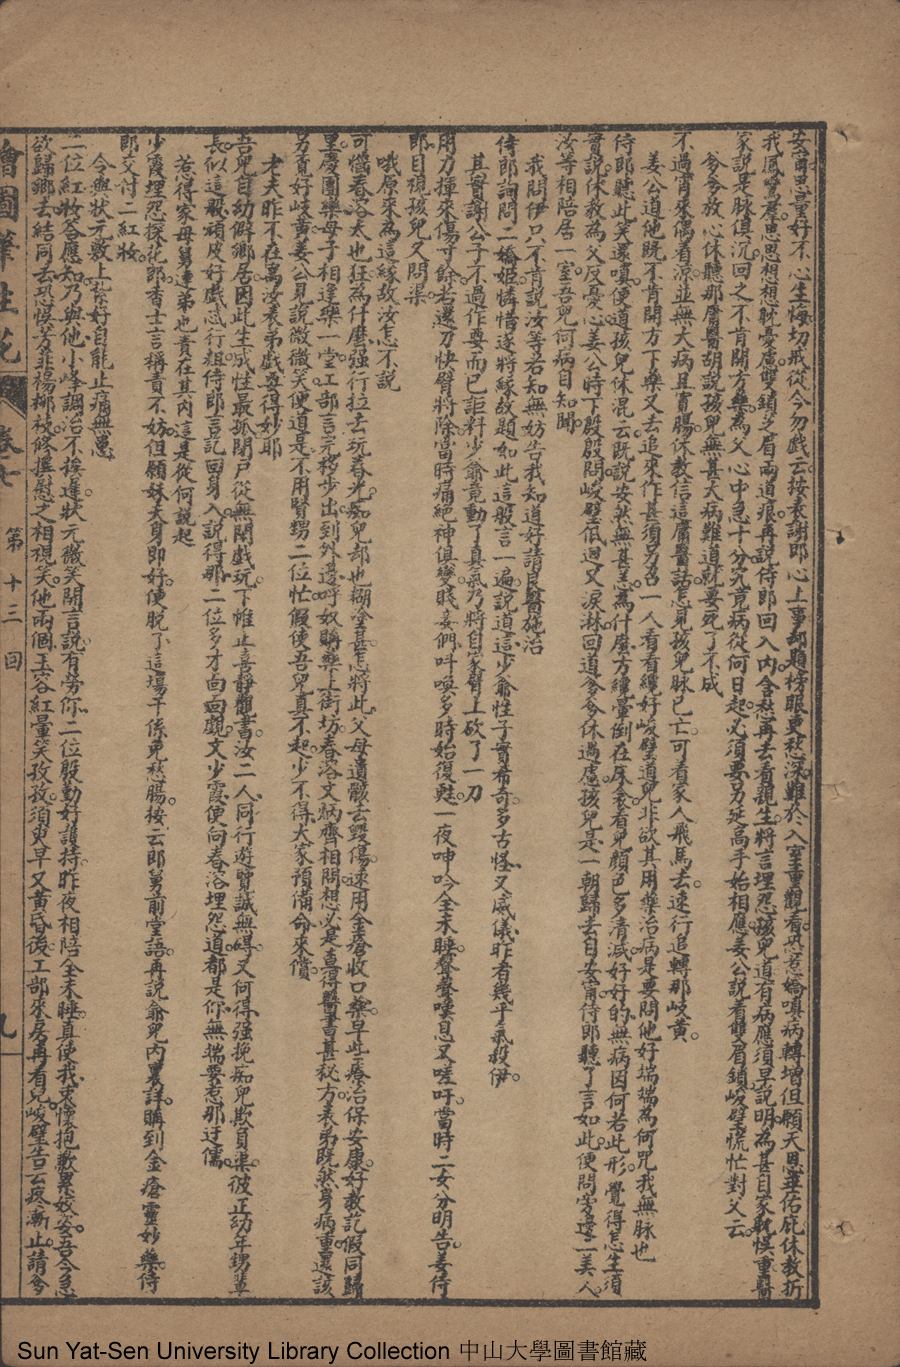 安甯思量好不心生悔切戒從今勿戲云按表謝郎心上事却題榜眼更愁深難於入室重觀看恐惹嬌嗔病轉增但願天恩垂佑庇休教折
我鳳鸞羣思思想想耽憂慮雙鎖之眉兩道痕再説侍郎回入内含愁再去看親生將言埋怨孩兒道有病應須早説明為甚自家耽悞重醫
家説是脉俱沉回之不肯開方藥為父心中急十分究竟病從何日起必須要另延高手始相應姜公説着雙眉鎖峻璧慌忙對父云
爹爹放心休聽那庸醫胡説孩兒無甚大病難道就要死了不成
不過宵來偶着涼並無大病且寬腸休教信這庸醫話怎見孩兒脉已亡可着家人飛馬去速行追轉那岐黄
姜公道他既不肯開方下藥又去追來作甚須另召一人看看纔好峻璧道兒非欲其用藥治病是要問他好端端為何咒我無脉也
侍郎聽此笑還嗔便道孩兒休混云既説安然無甚恙為什麽方纔暈倒在床衾看兒顏色多清減好好的無病因何若此形覺得怎生須
實説休教為父反憂心姜公時下殷殷問峻璧低迴又淚淋回道爹爹休過慮孩兒是一朝歸去自安甯侍郎聽了言如此便問旁邊二美人
汝等相陪居一室吾兒何病自知聞
我問伊只不肯説汝等若知無妨告我知道好請良醫施治
侍郎詢問二嬌姬憐惜遂將緣故題如此這般言一遍説道這少爺性子實希奇多古怪又威儀昨者幾乎氣殺伊
其實謝公子不過作耍而已詎料少爺竟動了真氣乃將自家臂上砍了一刀
用力揮來傷寸餘若還刀快臂將除當時痛絶神俱變賤妾們叫喚多時始復甦一夜呻吟全未睡聲聲嘆息又嗟吁當時二女分明告姜侍
郎目視孩兒又問渠
哦原來為這緣故汝怎不説
可惱春溶太也狂為什麽強行拉去玩春光痴兒却也糊塗甚怎將此父母遺骸去毀傷速用金瘡收口藥早些療治保安康好教訖假同歸
里慶團欒母子相逢樂一堂工部言完移步出到外邊呼奴購藥上街坊春溶文炳齊相問想必是喜得醫書甚秘方表弟既然身病重還該
另覓好岐黄姜公見説微微笑便道是不用賢甥二位忙假使吾兒真不起少不得大家預備命來償
老夫昨不在寓汝表弟戲耍得妙耶
吾兒自幼僻鄉居因此生成性最孤閉戶從無閒戲玩下帷止喜靜觀書汝二人同行遊覽誠無碍又何得強挽痴兒欺負渠彼正幼年甥輩
長似這般頑皮好戲忒行粗侍郎言訖回身入説得那二位多才面面覷文少霞便向春溶埋怨道都是你無端要惹那迂儒
若得家母舅連弟也責在其内這是從何説起
少霞埋怨探花郎香士言稱責不妨但願妹夫身即好便脱了這塲干係免愁腸按云郎舅前堂語再説爺兒内裏詳購到金瘡靈妙藥侍
郎交付二紅妝
令與狀元敷上紮好自能止痛無患
二位紅妝合應知乃與他小峰調治不挨遲狀元微笑開言説有勞你二位殷勤好護持昨夜相陪全未睡真使我衷懷抱歉累姣姿吾今急
欲歸鄉去結同去恐悞芳菲楊柳枝修撰慰之相視笑他兩個玉容紅暈笑孜孜須臾早又黄昏後工部來房再看兒峻璧告云疼漸止請爹
繪圖筆生花
卷七
第十三回
九
Sun Yat-Sen University Library Collection 中山大學圖書館藏